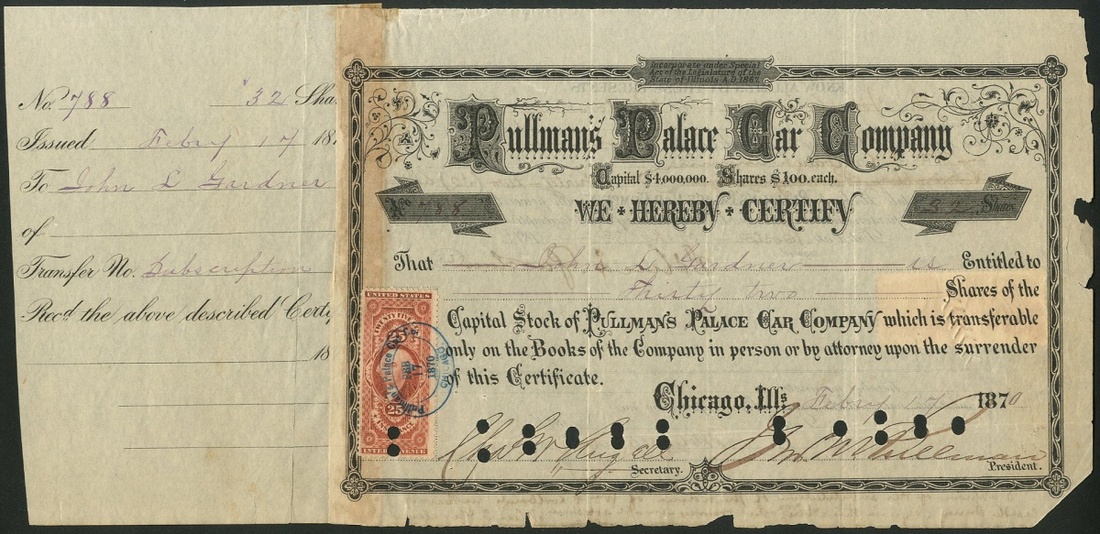 No. 788 32 Sha
Issued Febry 17 18
To John L Gardner
of
Transfer No. Subscription
Recd. the above described Certi
18
Incorporate under Special
Act of the Legislature of the
State of Illinois A.D. 1867.
Pullman's Palace Car Company
Capital $4,000,000. Shares $100. each.
WE HEREBY CERTIFY
No 788
32 Shares
That John L Gardner is Entitled to
Thirty two Shares of the
Capital Stock of PULLMAN'S PALACE CAR COMPANY which is transferable
only on the Books of the Company in person or by attorney upon the surrender
of this Certificate.
Chicago, Ills Febry 17 1870
Secretary.
Geo M Pullman
President.
UNITED STATES
TWENTY FIVE
25
INTER. REVENUE
Palace
17
1870